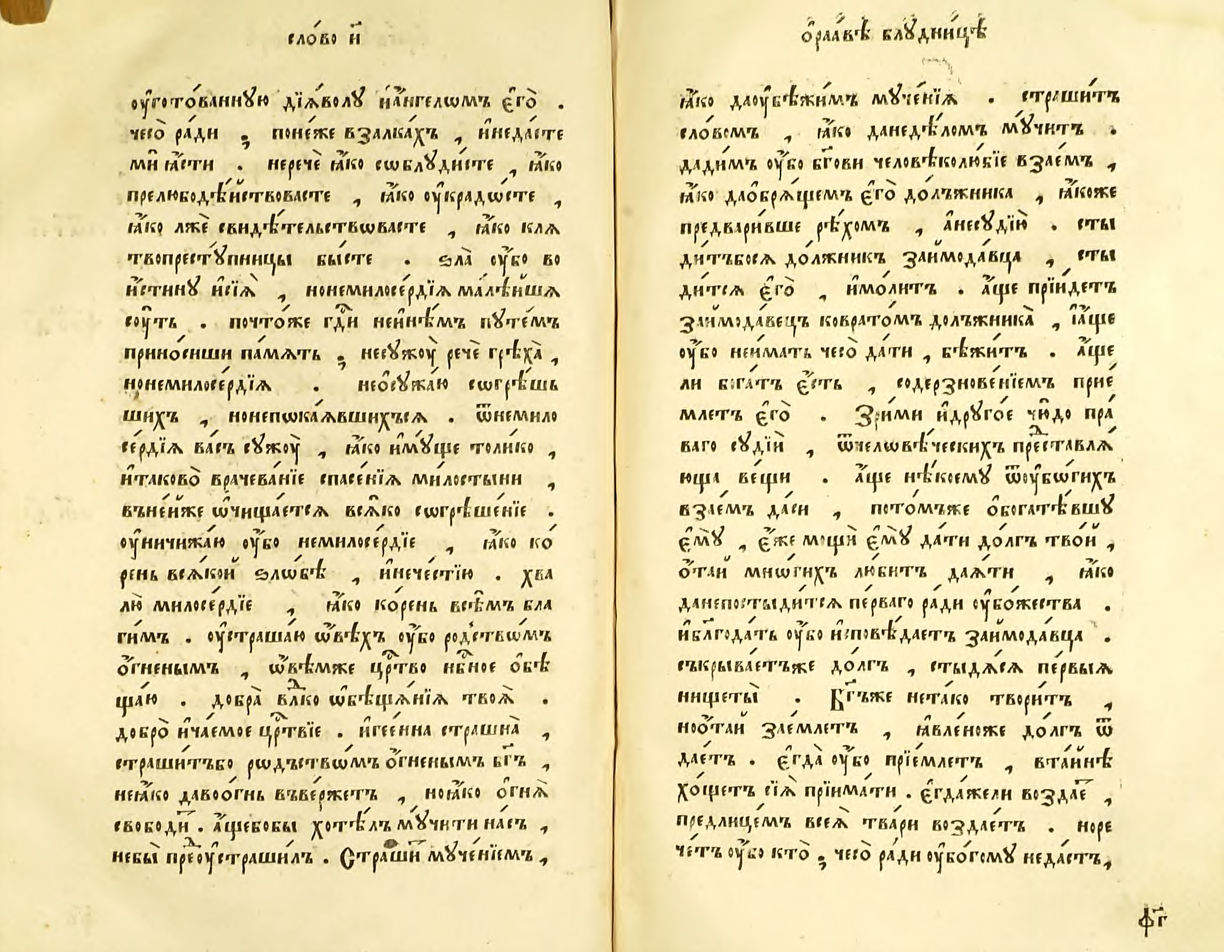 сло́во и҃
оу҆гото́ваннꙋю дїѧ́волꙋ и҆а҆́нгелѡмъ є҆го̀ .
чесо̀ ра́ди ; поне́же взалка́хъ , и҆неда́сте
мѝ ꙗ҆́сти . неречѐ ꙗ҆́ко сѡблꙋди́сте , ꙗ҆́ко
прелюбодѣ́йствовасте , ꙗ҆́ко оу҆кра́дѡсте ,
ꙗ҆́ко лжѐ свидѣ́тельствѡвасте , ꙗ҆́ко клѧ
твопрестꙋ́пницы бы́сте . ѕла̀ оу҆́бо во
и҆́стинꙋ и҆сїѧ̀ , нонемилосе́рдїѧ ма́лѣйшѧ
сꙋ́ть . почто́же гдⷭ҇и неи҆нѣ́мъ пꙋте́мъ
прино́сиши па́мѧть ; несꙋжоу̀ речѐ грѣха̀ ,
нонемилосе́рдїѧ . неѻ҆сꙋжа́ю сѡгрѣ́шь
шихъ , нонепѡка́ѧвшихъсѧ . ѿнемило
се́рдїѧ ва́съ сꙋжоу̀ , ꙗ҆́ко и҆мꙋ́ще толи́ко ,
и҆таково̀ врачева́нїе спасе́нїѧ ми́лостыни ,
въне́йже ѡ҆чища́етсѧ всѧ́ко сѡгрѣше́нїе .
оу҆ничижа́ю оу҆́бо немилосе́рдїе , ꙗ҆́ко ко́
рень всѧ́кой ѕло́бѣ , и҆нече́стїю . хва
лю̀ милосе́рдїе , ꙗ҆́ко ко́рень всѣ̑мъ бла
ги́мъ . оу҆страша́ю ѡ҆вѣ́хъ оу҆́бо ро́дствѡмъ
ѻ҆́гненымъ , ѡ҆вѣ́мже црⷭ҇тво нбⷭ҇ное ѻ҆бѣ
ща́ю . добра̀ влⷣко ѡ҆бѣща́нїѧ твоѧ̀ .
добро̀ и҆ча́емое црⷭ҇твїе . и҆гее́нна страшна̀ ,
страши́тъбо рѡ́дъствѡмъ ѻ҆́гненымъ бг҃ъ ,
неꙗ҆́ко даво́огнь вве́ржетъ , ноꙗ҆́ко ѻ҆гнѧ̀
свободи́т . а҆́щебобы хотѣ́лъ мꙋ́чити на́съ ,
небы̀ преⷤоу҆страши́лъ . Страши́т мꙋче́нїемъ ,
ѻ҆раа́вѣ блꙋдни́цѣ
ꙗ҆́ко даоу҆бѣжи́мъ мꙋче́нїѧ . страши́тъ
сло́вомъ , ꙗ҆́ко данедѣ́ломъ мꙋ́читъ .
дади́мъ оу҆́бо бг҃ови человѣколю́бїе взае́мъ ,
ꙗ҆́ко даѡ҆брѧ́щемъ є҆го̀ до́лъжника , ꙗ҆́коже
предвари́вше рѣ́хомъ , а҆несꙋдїю̀ . сты
ди́тъбосѧ до́лжникъ заимода́вца , сты
ди́тсѧ є҆го̀ , и҆мо́литъ . а҆́ще прїи́детъ
заимода́вецъ ковратѡ́мъ до́лъжника , и҆а҆́ще
оу҆́бо неи́мать чесо̀ да́ти , бѣжи́тъ . а҆́ще
ли бога́тъ є҆́сть , содерзнове́нїемъ прїе́
млетъ є҆го̀ . Зри́ми и҆дрꙋго́е чю́до пра́
ваго сꙋдїи̑ , ѿчелѡвѣ́ческихъ преⷣставлѧ́
юща ве́щи . а҆́ще нѣ́коемꙋ ѿоу҆бѡ́гихъ
взае́мъ да́си , пото́мъже ѻ҆богатѣ́вшꙋ
є҆мꙋ̀ , є҆́же мо́щи є҆мꙋ̀ да́ти до́лгъ тво́и ,
ѻ҆та́й мнѡ́гихъ лю́битъ даѧ́ти , ꙗ҆́ко
данепостыди́тсѧ пе́рваго ра́ди оу҆бо́жества .
и҆блгⷣода́ть оу҆́бо и҆сповѣ́даетъ заимода́вца .
съкрыва́етъже до́лгъ , стыдѧ́сѧ пе́рвыѧ
нищеты̀ . Бг҃ъже нета́ко твори́тъ ,
нооⷮта́й зае́млетъ , ꙗ҆влено́же до́лгъ ѿ
дае́тъ . є҆гда̀ оу҆́бо прїе́млетъ , вта́йнѣ
хо́щетъ сїѧ̀ прїима́ти . є҆гда́жели воздае́т ,
предлице́мъ всеѧ̀ тва́ри воздае́тъ . норе
че́тъ оу҆́бо кто̀ ; чесо̀ ра́ди оу҆бо́гомꙋ неда́стъ,
фг҃